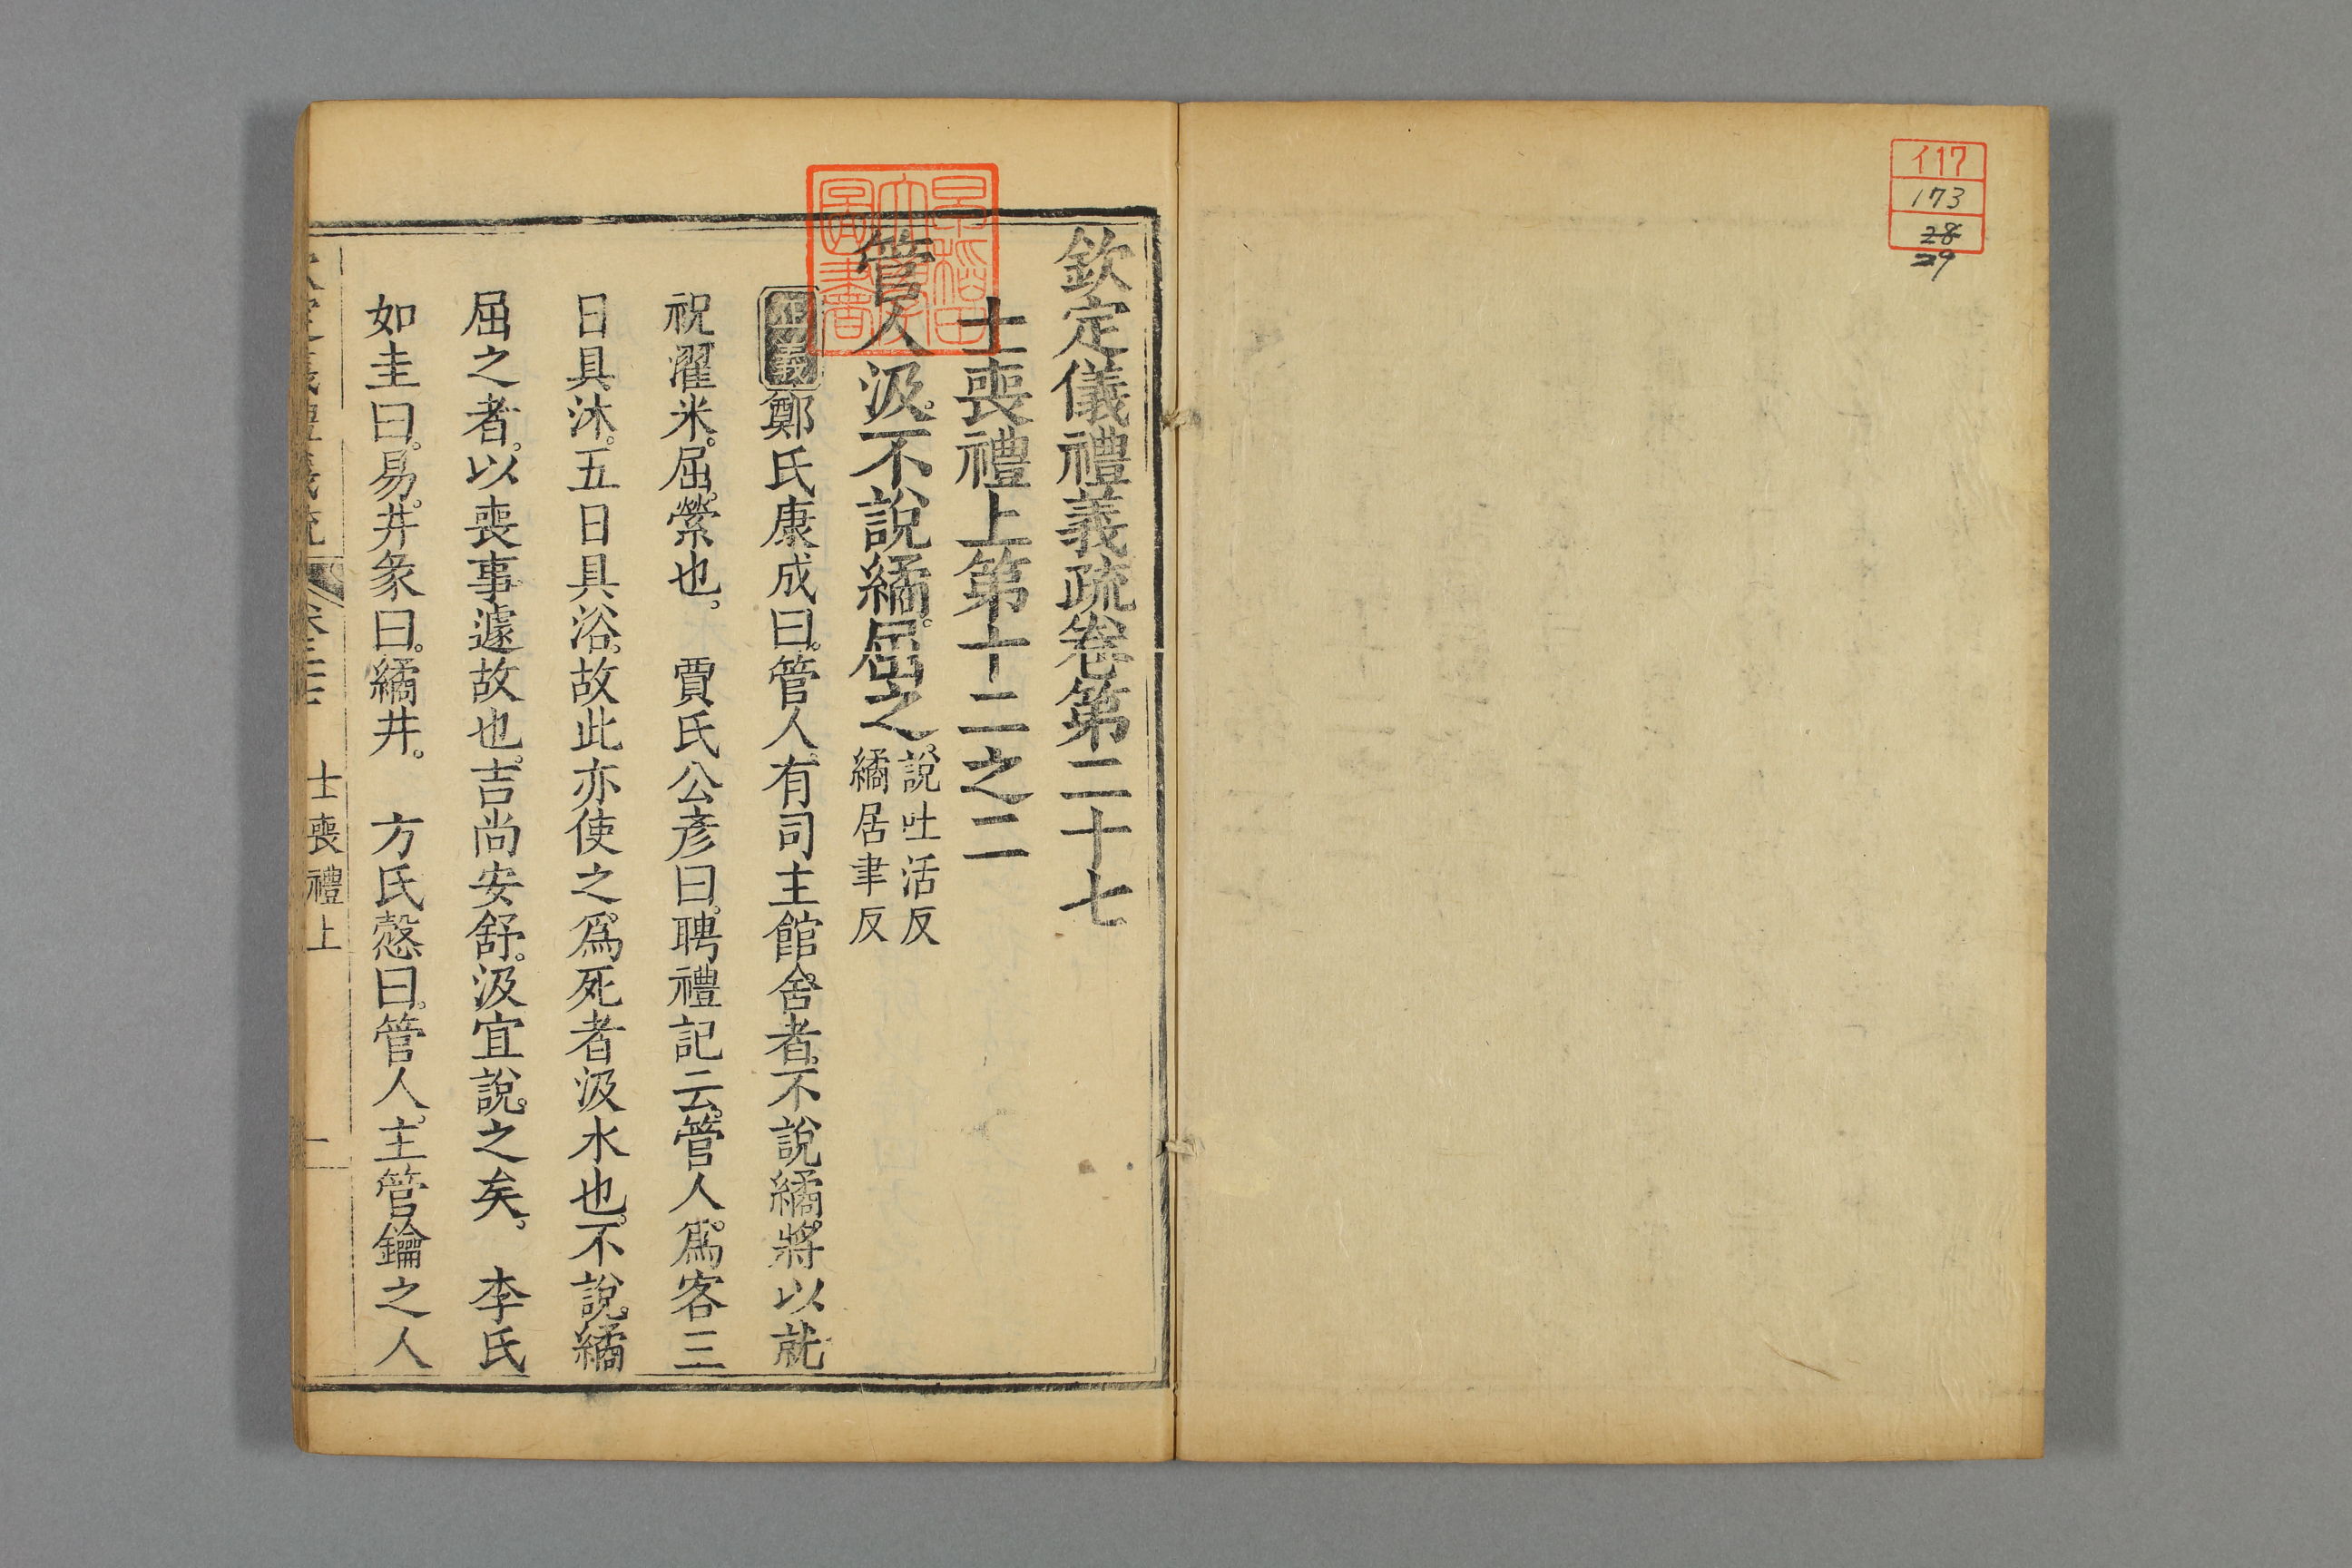 イ17
173
28
29
欽定儀禮義疏卷第二十七
士喪禮上第十二之二
管人汲。不說繘。屈之。說吐活反
繘居聿反
正義鄭氏康成曰。管人。有司主館舍者。不說繘。將以就
祝濯米。屈。縈也。 賈氏公彥曰。聘禮記云。管人。爲客三
日具沐。五日具浴。故此亦使之。爲死者汲水也。不說繘
屈之者。以喪事遽故也。吉尚安舒。汲宜說之矣。 李氏
如圭曰。易。井彖曰。繘井。 方氏愨曰。管人。主管鑰之人
欽定儀禮義疏 卷二十七 士喪禮上 一
早稻田大學圖書